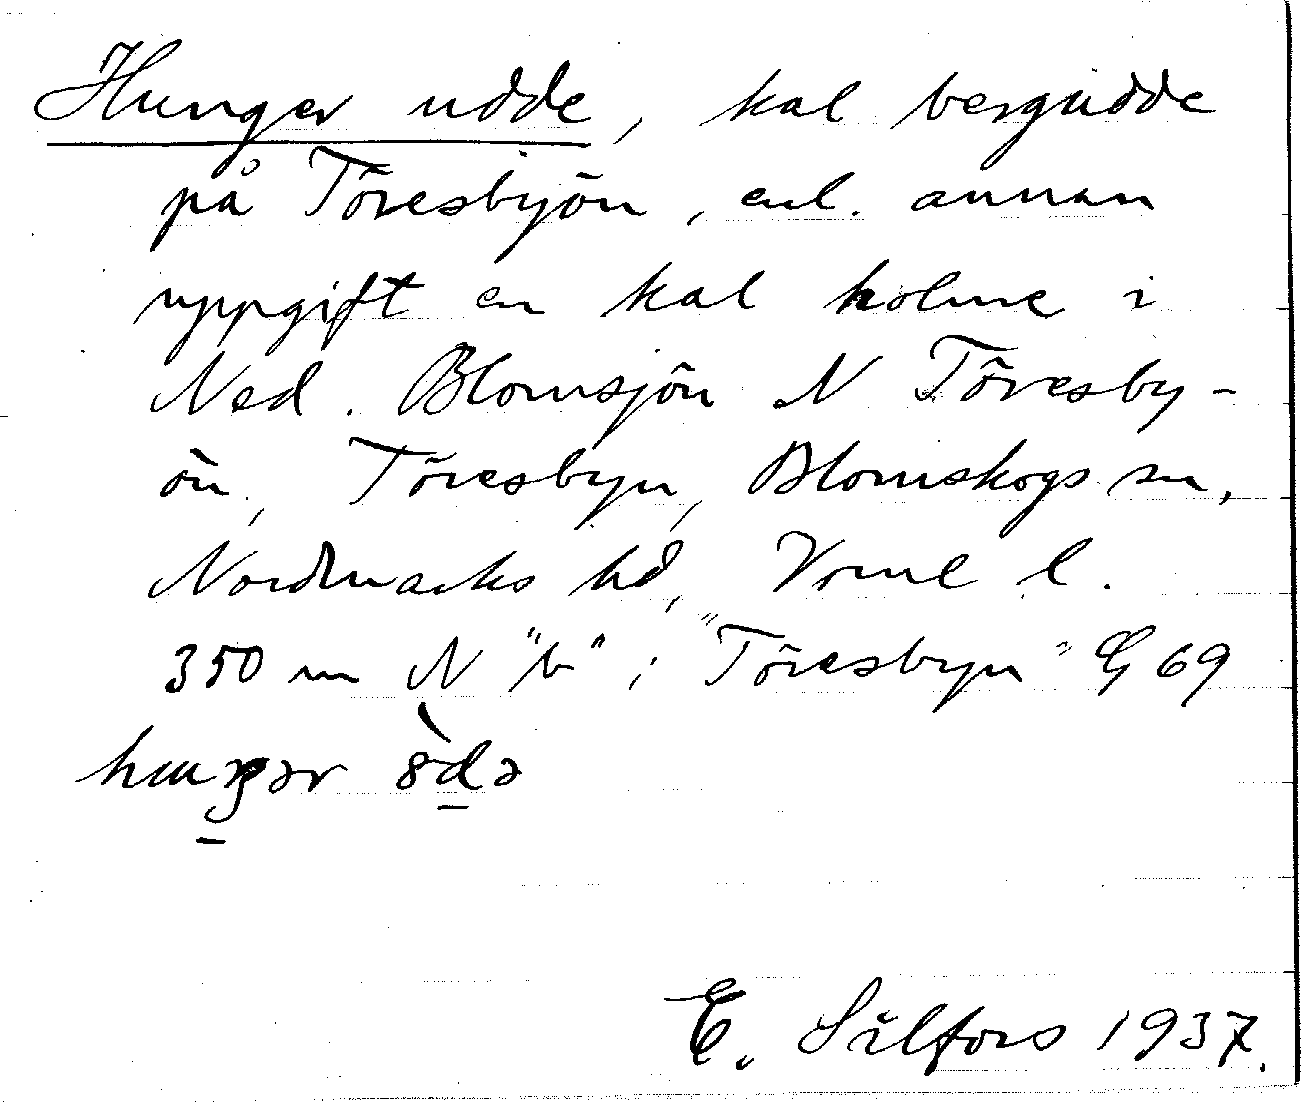 Hunger udde, kal bergudde
på Töresbyön, enl. annan
uppgift en kal holme i
Ned. Blomsjön N Töresby-
ön, Töresbyn, Blomskogs sn,
Nordmarks hd, Vrml l.
350 m N "b" i "Töresbyn" G 69
E. Silfors 1937.